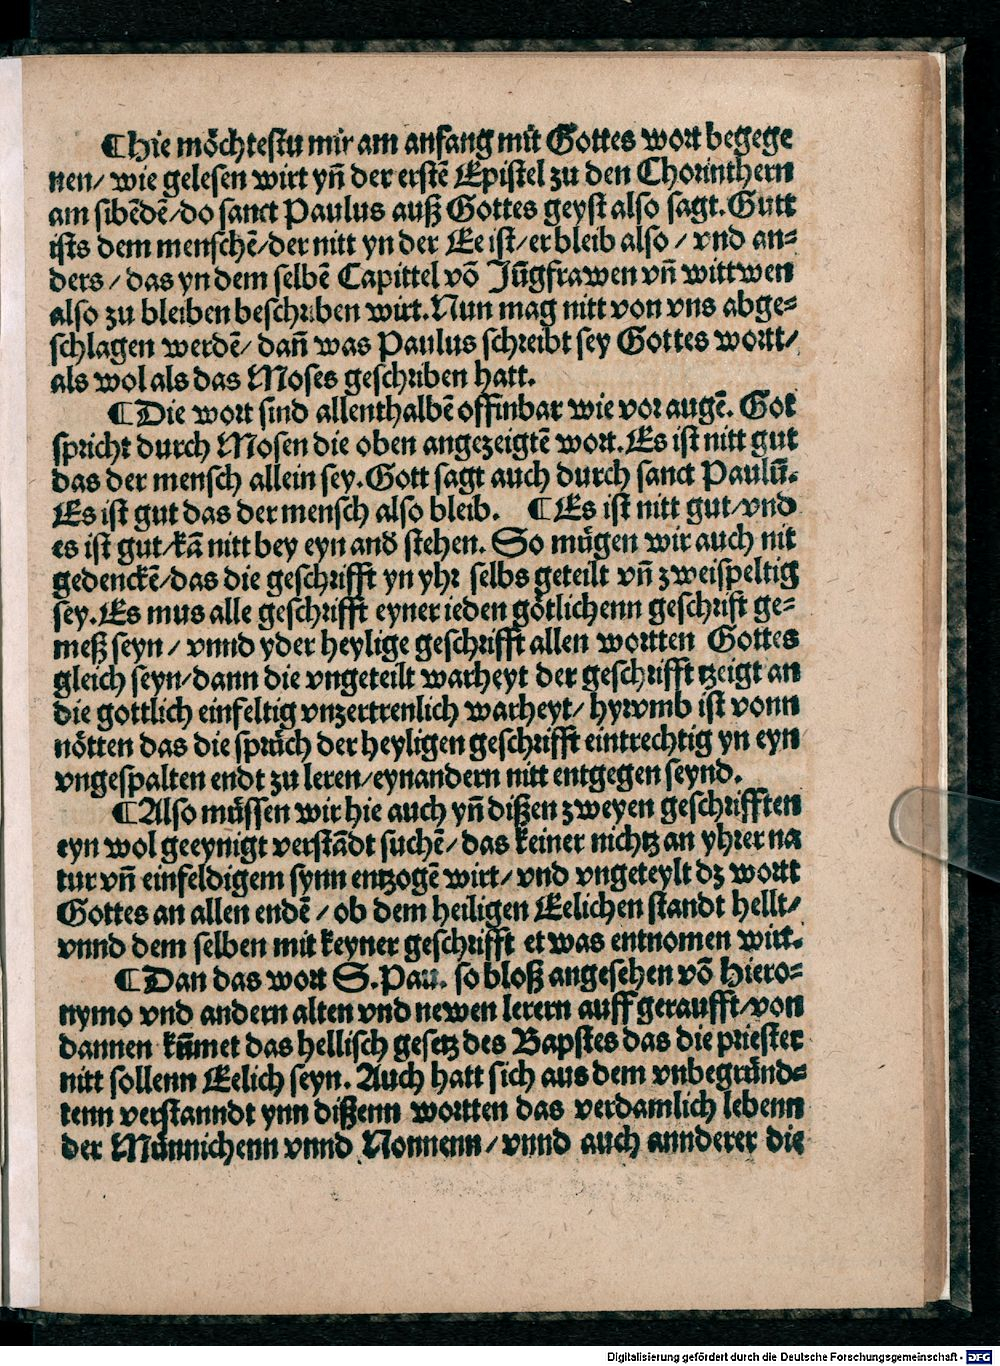 ¶Hie möchtestu mir am anfang mit Gottes wort begege
nen/ wie gelesen wirt yñ der erstē Epistel zu den Chorinthern
am sibēdē/do sanct Paulus auß Gottes geyst also sagt. Gutt
ists dem menschē/der nitt yn der Ee ist/er bleib also / vnd an⸗
ders / das yn dem selbē Capittel vō Jūgfrawen vñ wittwen
also zu bleiben beschriben wirt. Nun mag nitt von vns abge⸗
schlagen werdē/ dañ was Paulus schreibt sey Gottes wortt/
als wol als das Moses geschriben hatt.
¶Die wort sind allenthalbē offinbar wie vor augē. Got
spricht durch Mosen die oben angezeigtē wort. Es ist nitt gut
das der mensch allein sey. Gott sagt auch durch sanct Paulū.
Es ist gut das der mensch also bleib. ¶Es ist nitt gut/vnd
es ist gut/kā nitt bey eyn and̄ stehen. So mügen wir auch nit
gedenckē/das die geschrifft yn yhr selbs geteilt vñ zweispeltig
sey. Es mus alle geschrifft eyner ieden götlichenn geschrift ge⸗
meß seyn / vnnd yder heylige geschrifft allen wortten Gottes
gleich seyn/dann die vngeteilt warheyt der geschrifft tzeigt an
die gottlich einfeltig vnzertrenlich warheyt/ hyrvmb ist vonn
nötten das die sprüch der heyligen geschrifft eintrechtig yn eyn
vngespalten endt zu leren/eynandern nitt entgegen seynd.
¶Also müssen wir hie auch yñ dißen zweyen geschrifften
eyn wol geeynigt verstādt suchē/ das keiner nichtz an yhrer na
tur vñ einfeldigem synn entzogē wirt/ vnd vngeteylt dz wortt
Gottes an allen endē / ob dem heiligen Eelichen standt hellt/
vnnd dem selben mit keyner geschrifft etwas entnomen witt.
¶Dan das wort S. Pau. so bloß angesehen vō Hiero⸗
nymo vnd andern alten vnd newen lerern auff geraufft/von
dannen kūmet das hellisch gesetz des Bapstes das die priester
nitt sollenn Eelich seyn. Auch hatt sich aus dem vnbegründ⸗
tenn verstanndt ynn dißenn wortten das verdamlich lebenn
der Münnichenn vnnd Nonnenn/ vnnd auch annderer die
Digitalisierung gefördert durch die Deutsche Forschungsgemeinschaft - DFG